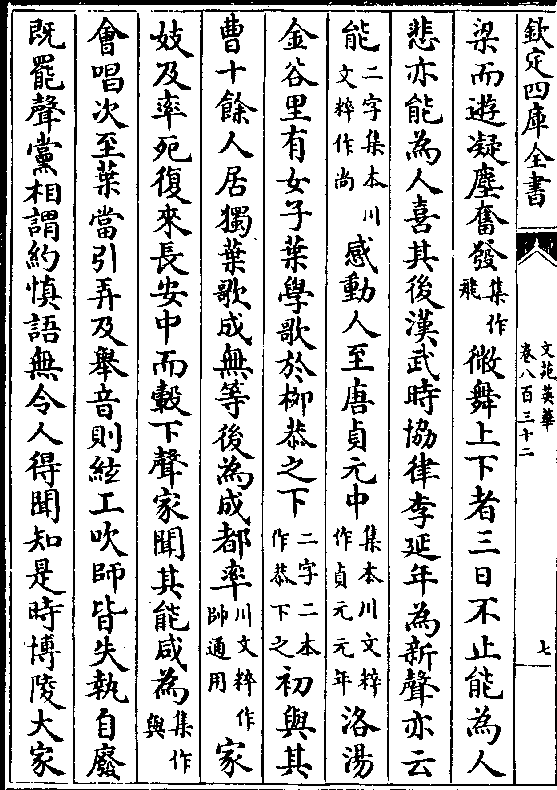 欽定四庫全書
文苑英華
卷八百三十二
七
梁而遊凝塵奮發集作飛微舞上下者三日不止能為人
悲亦能為人喜其後漢武時協律李延年為新聲亦云
能二字集本川文粹作尚感動人至唐貞元中集本川文粹作貞元元年洛湯
金谷里有女子葉學歌於柳恭之下二字二本作恭下之初與其
曹十餘人居獨葉歌成無等後為成都率川文粹作帥通用家
妓及率死復來長安中而轂下聲家聞其能咸為集作與
會唱次至葉當引弄及舉音則絃工吹師皆失執自廢
既罷聲黨相謂約慎語無令人得聞知是時博陵大家